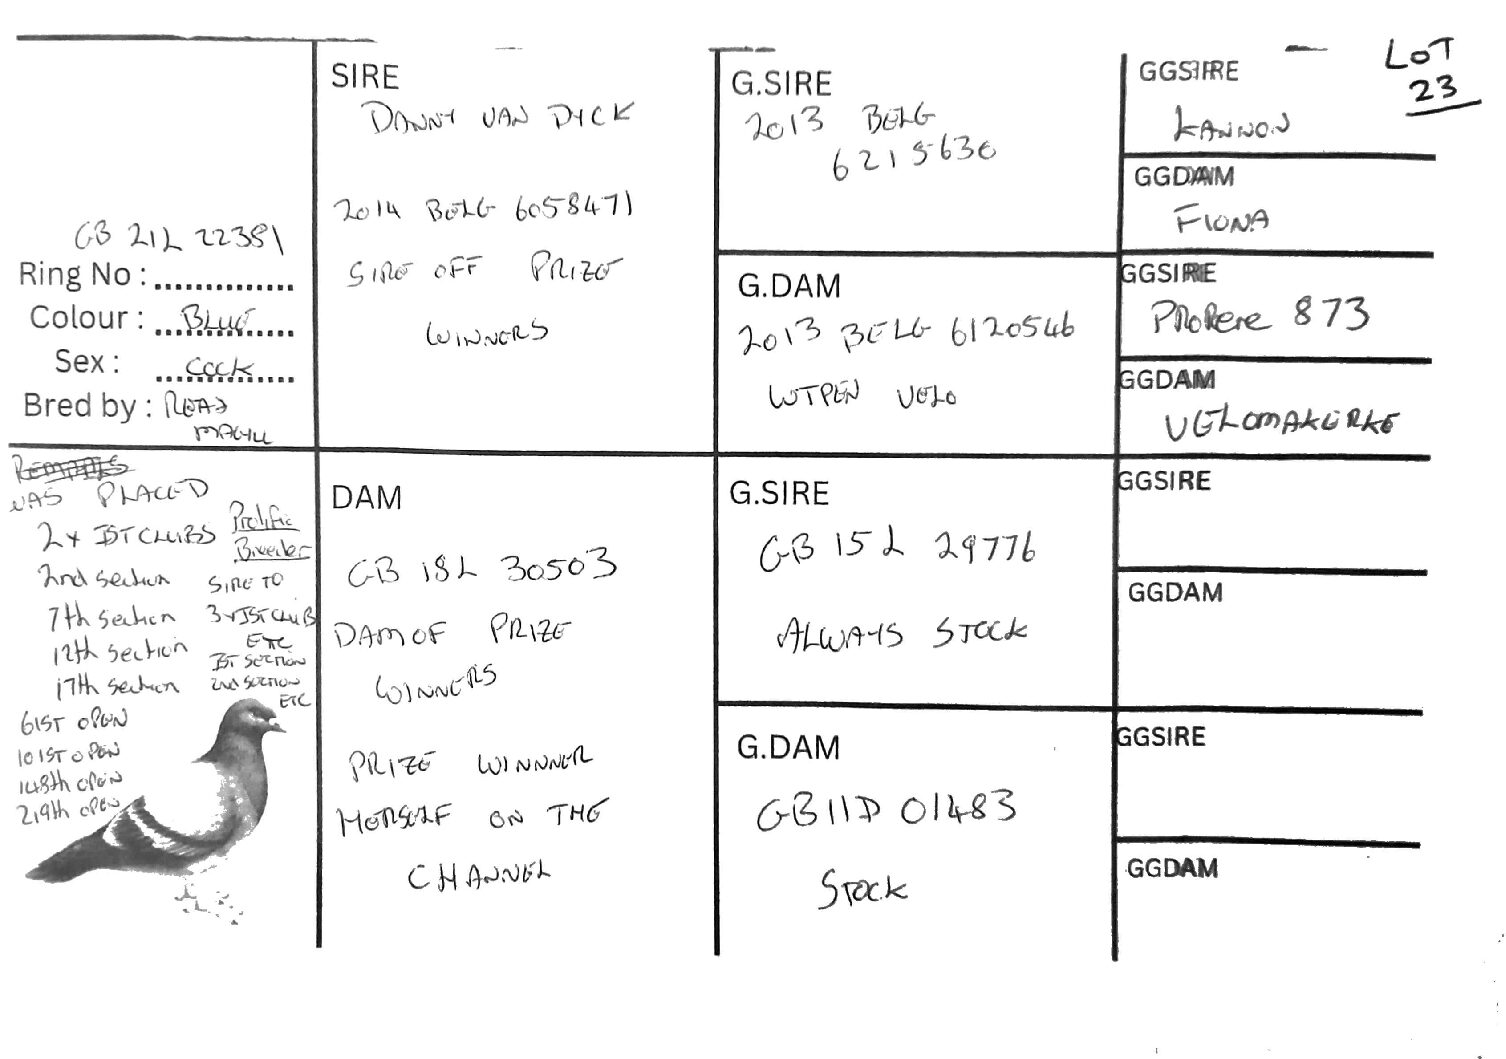 LOT
23
GB 21L 22381
Ring No :
Colour : BLUE
Sex : COCK
Bred by : READ
MAGILL
SIRE
DANNY VAN DYCK
2014 BELG 6058471
SIRE OFF PRIZE
WINNERS
G.SIRE
2013 BELG
6215630
G.DAM
2013 BELG 6120546
WTPEN VELO
GGSIRE
KANNON
GGDAM
FIONA
GGSIRE
PROPERE 873
GGDAM
VELOMAKERKE
REMARKS
WAS PLACED
2x IST CLUBS
2nd section
7th section
12th section
17th section
61ST OPEN
101ST OPEN
148th OPEN
219th OPEN
Prolific
Breeder
SIRE TO
3x IST CLUB
ETC
IST SECTION
2nd SECTION
ETC
DAM
GB 18L 30503
DAM OF PRIZE
WINNERS
PRIZE WINNNER
HERSELF ON THE
CHANNEL
G.SIRE
GB 15L 29776
ALWAYS STOCK
G.DAM
GB11D 01483
STOCK
GGSIRE
GGDAM
GGSIRE
GGDAM